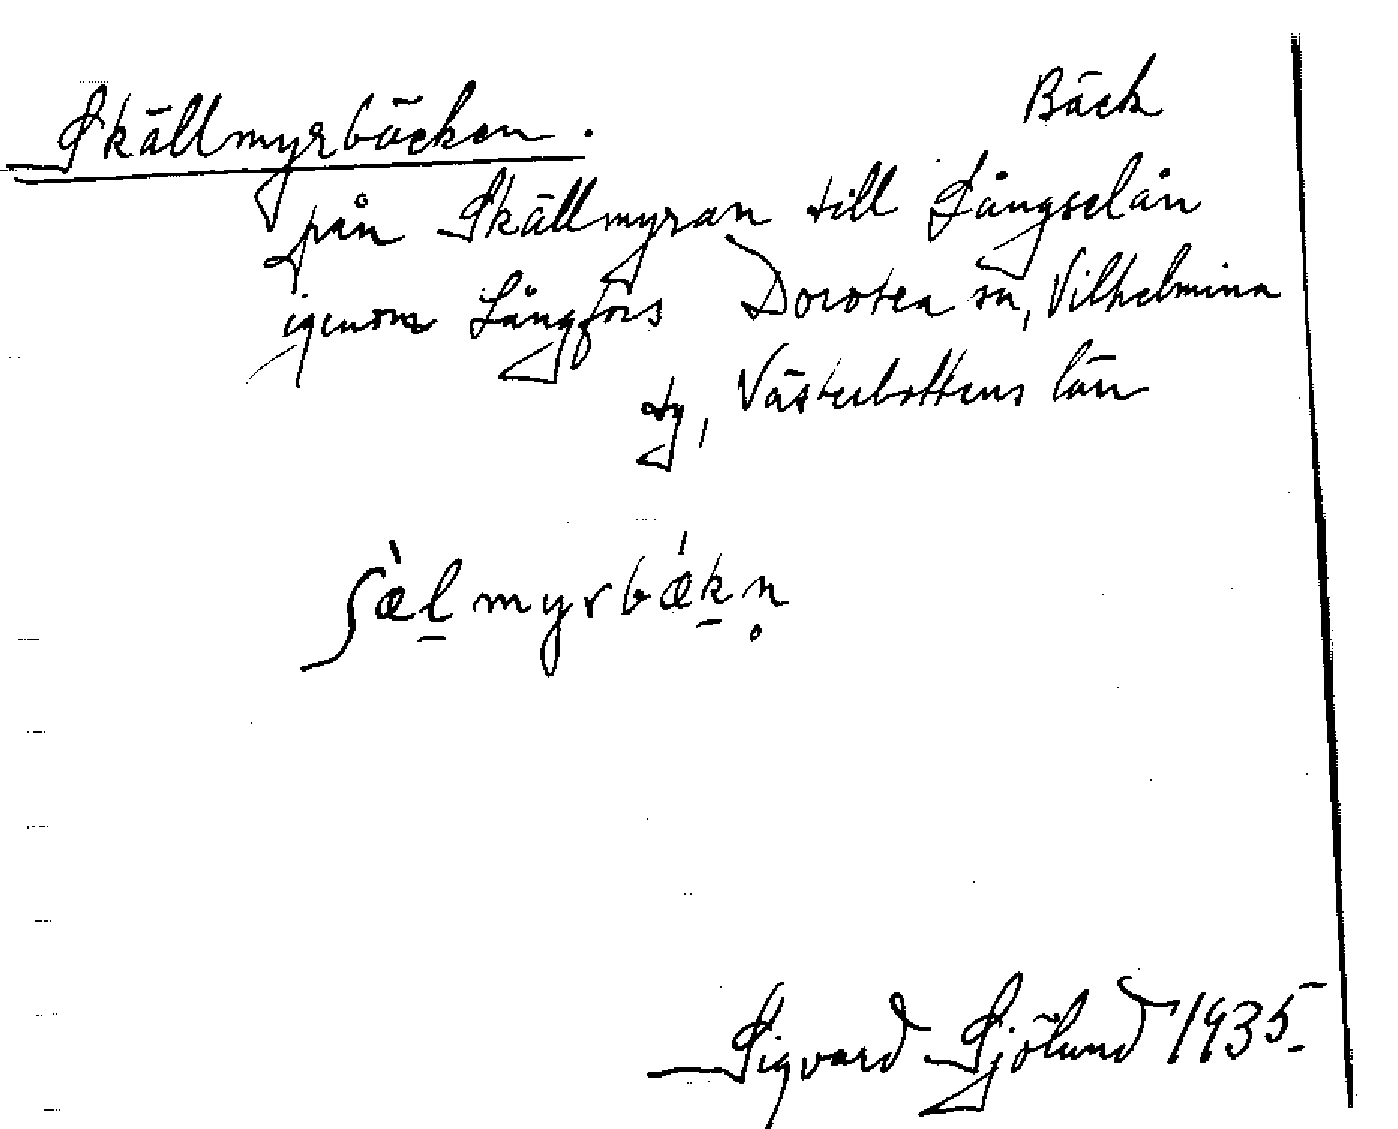 Bäck
Skällmyrbäcken.
från Skällmyran till Långselån
igenom Långfors Dorotea sn, Vilhelmina
tg, Västerbottens län
ʃæ̀l̠myrbǽk̠n̥
Sigvard Sjölund 1935.